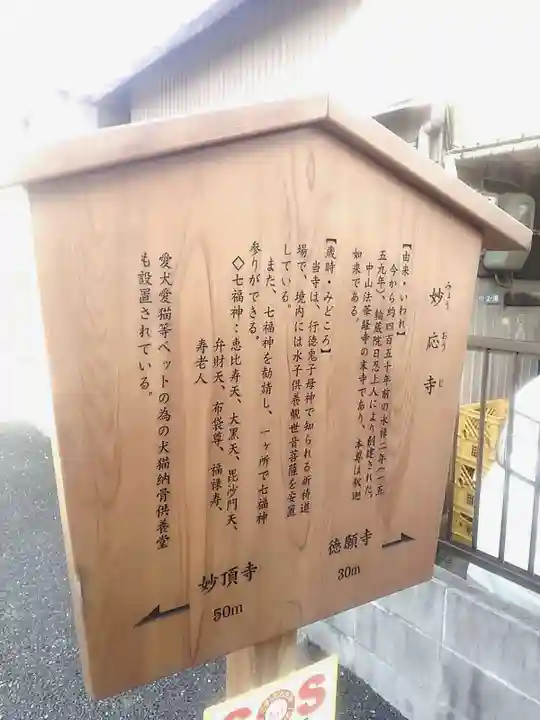 みょう おう じ
妙応寺
【由来・いわれ】
今から約四百五十年前の永禄二年(一五
五九年)、輪蔵院日忍上人により創建された、
中山法華経寺の末寺であり、本尊は釈迦
如来である。
【歳時・みどころ】
当寺は、行徳鬼子母神で知られる祈祷道
場で、境内には水子供養観世音菩薩を安置
している。
また、七福神を勧請し、一ヶ所で七福神
参りができる。
◇七福神:恵比寿天、大黒天、毘沙門天、
弁財天、布袋尊、福禄寿、
寿老人
愛犬愛猫等ペットの為の犬猫納骨供養堂
も設置されている。
徳願寺
30m
妙頂寺
50m
SOS